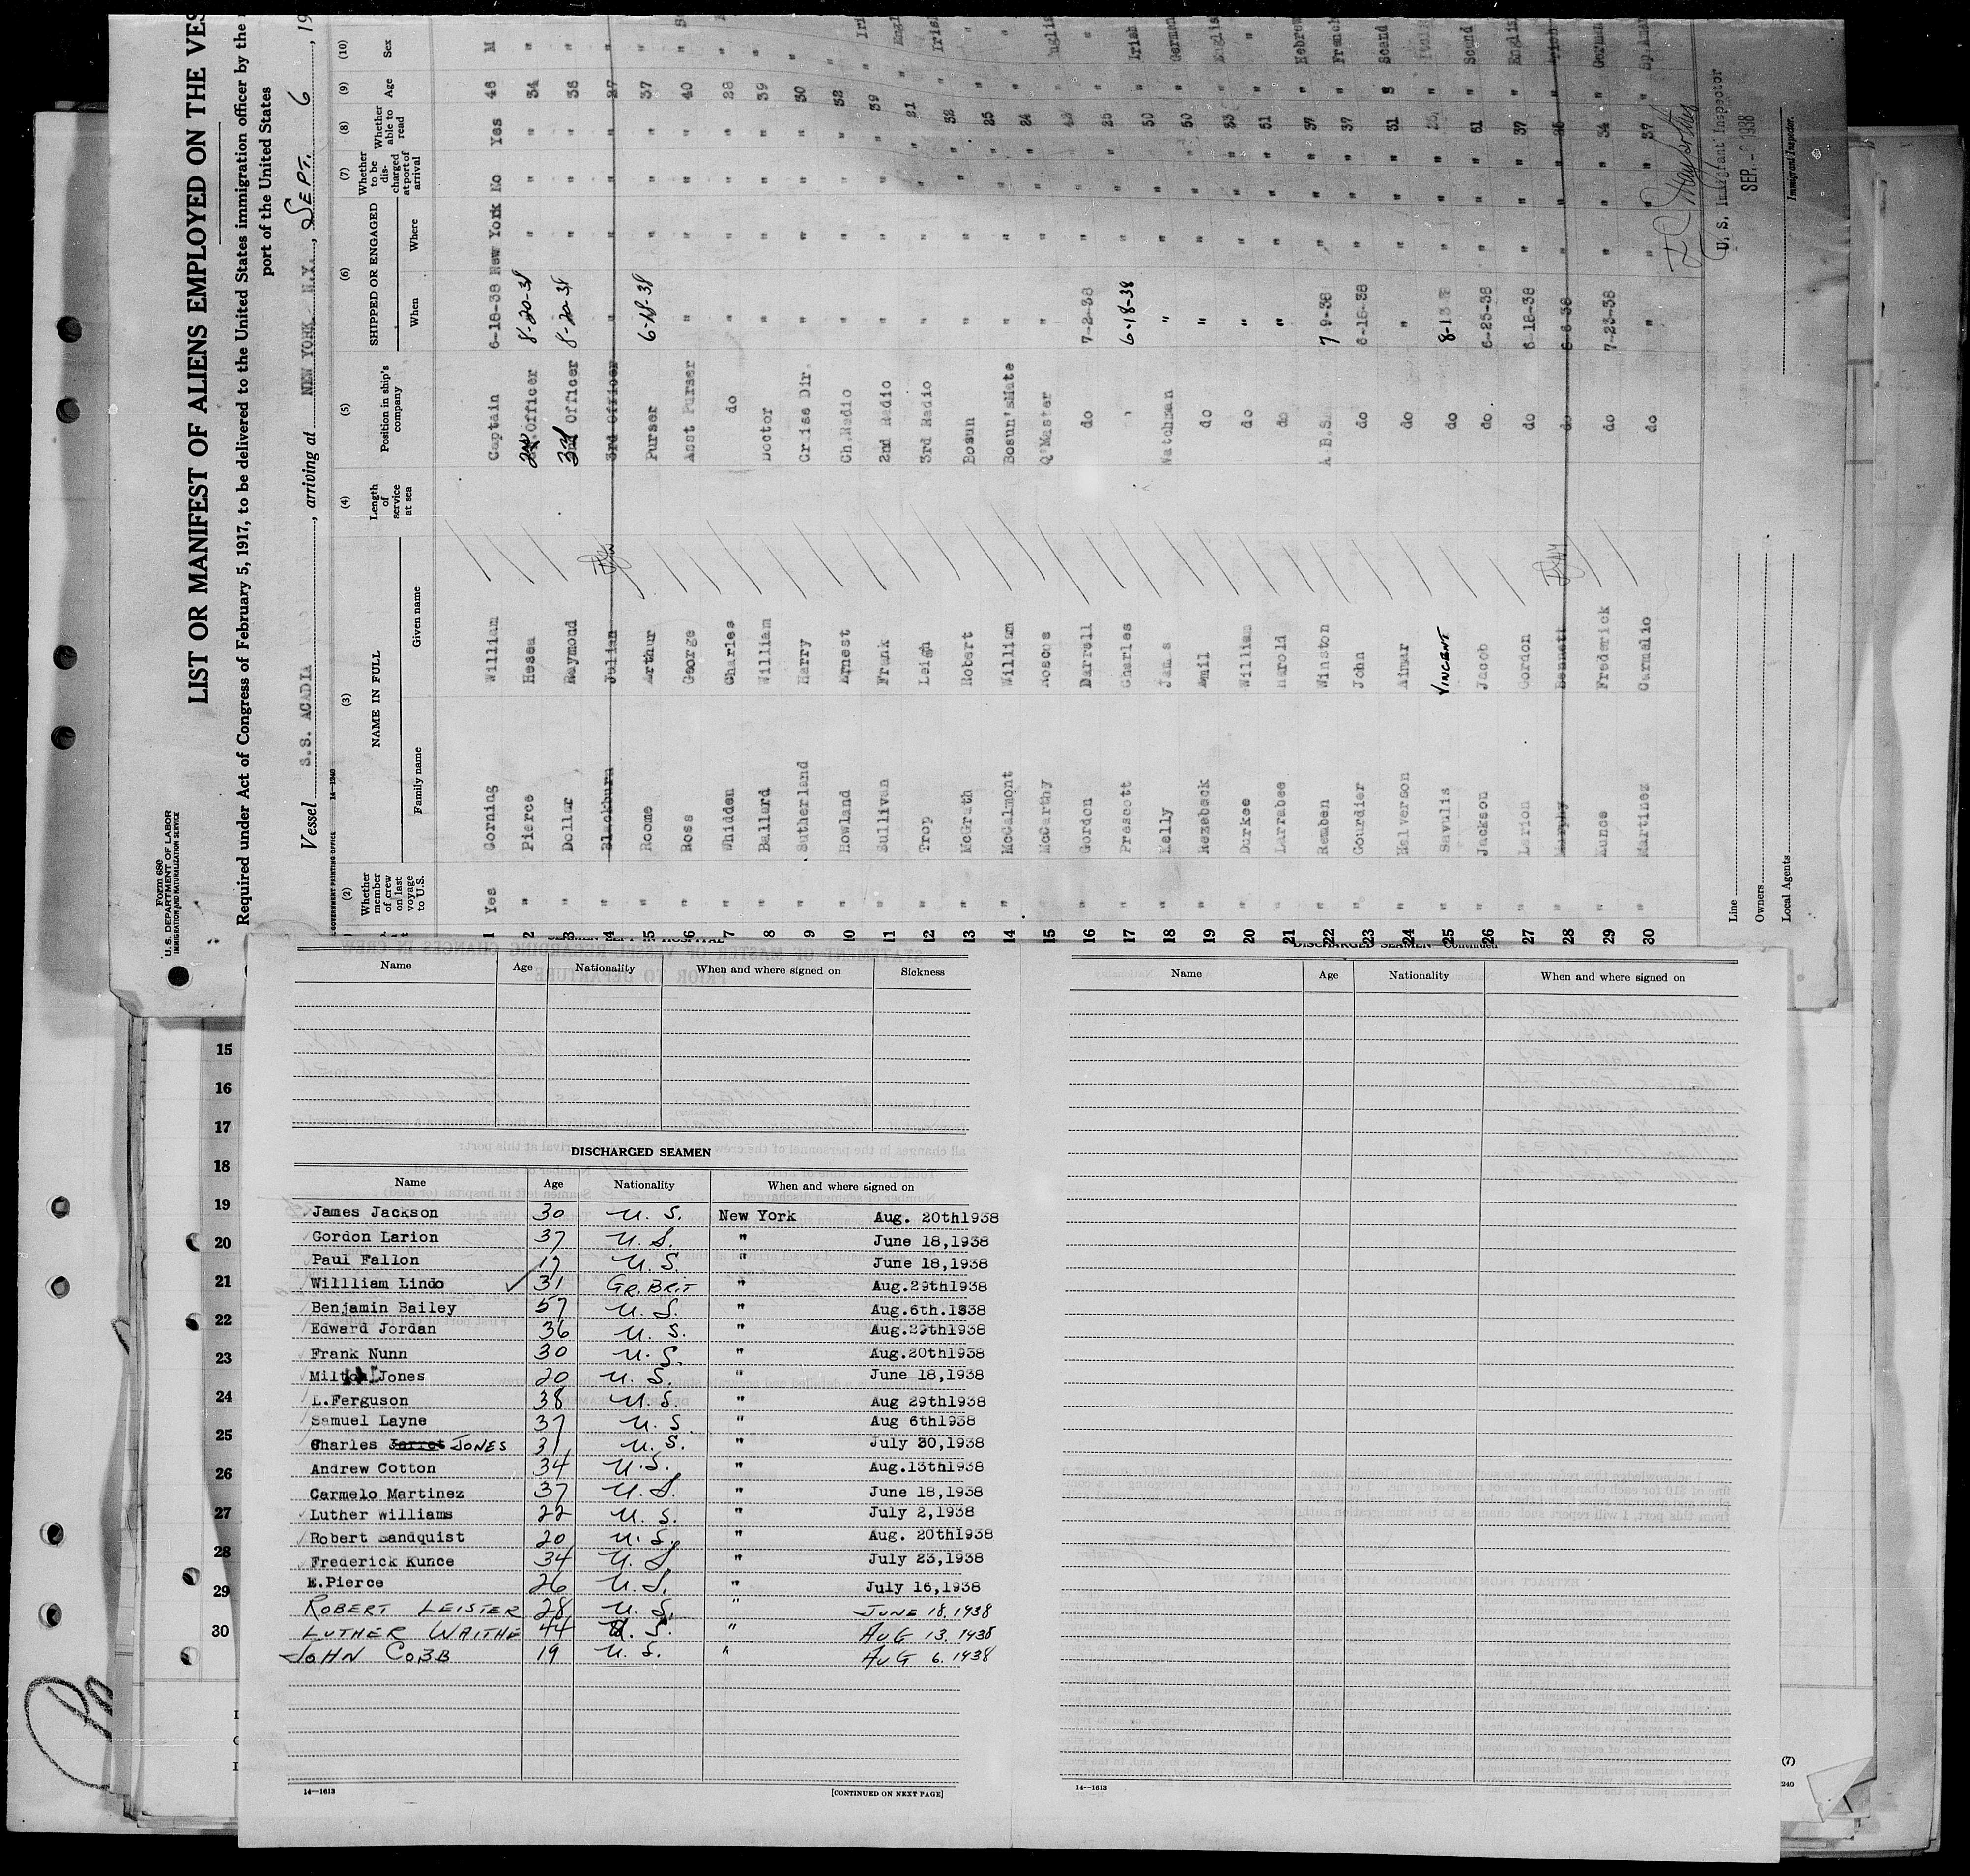 Form 680
U.S. DEPARTMENT OF LABOR
IMMIGRATION AND NATURALIZATION SERVICE
LIST OR MANIFEST OF ALIENS EMPLOYED ON THE VES
Required under Act of Congress of February 5, 1917, to be delivered to the United States immigration officer by the
port of the United States
Vessel S.S. ACADIA, arriving at NEW YORK N.Y., SEPT. 6, 19
GOVERNMENT PRINTING OFFICE 14—1240
(2) (3) (4) (5) (6) (7) (8) (9) (10)
Whether member of crew on last voyage to U.S. NAME IN FULL Family name Given name Length of service at sea Position in ship's company SHIPPED OR ENGAGED When Where Whether to be discharged at port of arrival Whether able to read Age Sex
1 Yes Corning William Captain 6-18-38 New York No Yes 46 M
2 " Pierce Hesea 2nd Officer 8-20-38 " " " 34 "
3 " Dollar Raymond 3rd Officer 8-20-38 " " " 36 "
4 " Blackburn Julian 3rd Officer " " " " 27 "
5 " Roome Arthur Purser 6-18-38 " " " 37 "
6 " Ross George Asst Purser " " " " 40 "
7 " Whidden Charles do " " " " 28 "
8 " Ballard William Doctor " " " " 39 "
9 " Sutherland Harry Cruise Dir. " " " " 30 "
10 " Howland Ernest Ch.Radio " " " " 32 " Iri
11 " Sullivan Frank 2nd Radio " " " " 39 " Engl
12 " Trop Leigh 3rd Radio " " " " 21 " Irish
13 " McGrath Robert Bosun " " " " 32 " "
14 " McCalmont William Bosun'sMate " " " " 25 " "
15 " McCarthy Roscoe Q'Master " " " " 24 "
16 " Gordon Darrell do 7-2-38 " " " "
17 " Prescott Charles 6-18-38 " " " " Irish
18 " Kelly James Watchman " " " " 50 " German
19 " Rezebeck Emil do " " " " 50 " English
20 " Durkee William do " " " " 33 " "
21 " Larrabee Harold do " " " " 51 "
22 " Remben Winston A.B.S. 7 9-38 " " " 37 " Hebrew
23 " Gourdier John do 6-18-38 " " " 37 " French
24 " Halverson Aimar do " " " " 31 Scand
25 " Savulis VINCENT do 8-13-38 " " " "
26 " Jackson Jacob do 6-25-38 " " " 51 " Scand
27 " Larion Gordon do 6-18-38 " " " 37 " English
28 " Murphy Bennett do 6-6-38 " " " "
29 " Kunce Frederick do 7-23-38 " " " 34 " German
30 " Martinez Carmalio do " " " " 37 "
Line
Owners
Local Agents
U. S. Immigrant Inspector
SEP. - 6 1938
Immigrant Inspector.
SEAMEN LEFT IN HOSPITAL
Name Age Nationality When and where signed on Sickness
DISCHARGED SEAMEN
Name Age Nationality When and where signed on
James Jackson 30 U. S. New York Aug. 20th1938
Gordon Larion 37 U. S. " June 18,1938
Paul Fallon 17 U. S. " June 18,1938
Willliam Lindo 31 GR. BRIT " Aug.29th1938
Benjamin Bailey 57 U. S. " Aug.6th.1938
Edward Jordan 36 U. S. " Aug.29th1938
Frank Nunn 30 U. S. " Aug.20th1938
Milton Jones 20 U. S. " June 18,1938
L.Ferguson 38 U. S. " Aug 29th1938
Samuel Layne 37 U. S " Aug 6th1938
Charles Jarret JONES 31 U. S. " July 30,1938
Andrew Cotton 34 U. S. " Aug.13th1938
Carmelo Martinez 37 U. S. " June 18,1938
Luther Williams 22 U. S. " July 2,1938
Robert Sandquist 20 U. S. " Aug. 20th1938
Frederick Kunce 34 U. S. " July 23,1938
E.Pierce 26 U. S. " July 16,1938
ROBERT LEISTER 28 U. S. " JUNE 18. 1938
LUTHER WAITHE 44 U. S. " AUG 13. 1938
JOHN COBB 19 U. S. " AUG 6. 1938
14—1613
[CONTINUED ON NEXT PAGE]
DISCHARGED SEAMEN—Continued
Name Age Nationality When and where signed on
14—1613
15
16
17
18
19
20
21
22
23
24
25
26
27
28
29
30
(7)
240